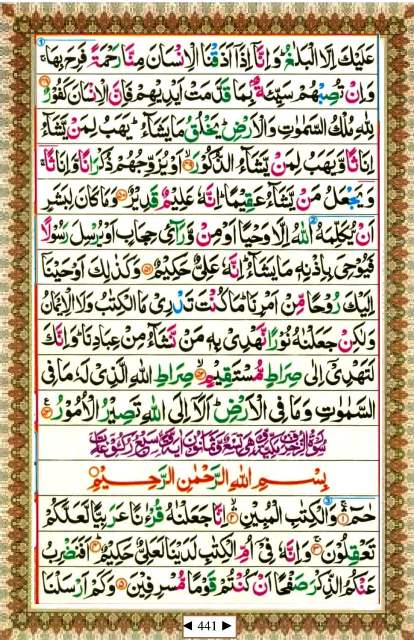 عَلَيْكَ اِلَّا الْبَلٰغُ ؕ وَ اِنَّاۤ اِذَاۤ اَذَقْنَا الْاِنْسَانَ مِنَّا رَحْمَةً فَرِحَ بِهَا ۚ
وَ اِنْ تُصِبْهُمْ سَیِّئَةٌۢ بِمَا قَدَّمَتْ اَیْدِیْهِمْ فَاِنَّ الْاِنْسَانَ كَفُوْرٌ ۴۸
لِلّٰهِ مُلْكُ السَّمٰوٰتِ وَ الْاَرْضِ ؕ یَخْلُقُ مَا یَشَآءُ ؕ یَهَبُ لِمَنْ یَّشَآءُ
اِنَاثًا وَّ یَهَبُ لِمَنْ یَّشَآءُ الذُّكُوْرَ ۙ ۴۹ اَوْ یُزَوِّجُهُمْ ذُكْرَانًا وَّ اِنَاثًا ۚ
وَ یَجْعَلُ مَنْ یَّشَآءُ عَقِیْمًا ؕ اِنَّهٗ عَلِیْمٌ قَدِیْرٌ ۵۰ وَ مَا كَانَ لِبَشَرٍ
اَنْ یُّكَلِّمَهُ اللّٰهُ اِلَّا وَحْیًا اَوْ مِنْ وَّرَآئِ حِجَابٍ اَوْ یُرْسِلَ رَسُوْلًا
فَیُوْحِیَ بِاِذْنِهٖ مَا یَشَآءُ ؕ اِنَّهٗ عَلِیٌّ حَكِیْمٌ ۵۱ وَ كَذٰلِكَ اَوْحَیْنَاۤ
اِلَیْكَ رُوْحًا مِّنْ اَمْرِنَا ؕ مَا كُنْتَ تَدْرِیْ مَا الْكِتٰبُ وَ لَا الْاِیْمَانُ
وَ لٰكِنْ جَعَلْنٰهُ نُوْرًا نَّهْدِیْ بِهٖ مَنْ نَّشَآءُ مِنْ عِبَادِنَا ؕ وَ اِنَّكَ
لَتَهْدِیْۤ اِلٰی صِرَاطٍ مُّسْتَقِیْمٍ ۙ ۵۲ صِرَاطِ اللّٰهِ الَّذِیْ لَهٗ مَا فِی
السَّمٰوٰتِ وَ مَا فِی الْاَرْضِ ؕ اَلَاۤ اِلَی اللّٰهِ تَصِیْرُ الْاُمُوْرُ ۵۳
بِسْمِ اللّٰهِ الرَّحْمٰنِ الرَّحِیْمِ
حٰمٓ ۚۛ ۱ وَ الْكِتٰبِ الْمُبِیْنِ ۙۛ ۲ اِنَّا جَعَلْنٰهُ قُرْءٰنًا عَرَبِیًّا لَّعَلَّكُمْ
تَعْقِلُوْنَ ۚ ۳ وَ اِنَّهٗ فِیْۤ اُمِّ الْكِتٰبِ لَدَیْنَا لَعَلِیٌّ حَكِیْمٌ ؕ ۴ اَفَنَضْرِبُ
عَنْكُمُ الذِّكْرَ صَفْحًا اَنْ كُنْتُمْ قَوْمًا مُّسْرِفِیْنَ ۵ وَ كَمْ اَرْسَلْنَا
◄ 441 ►